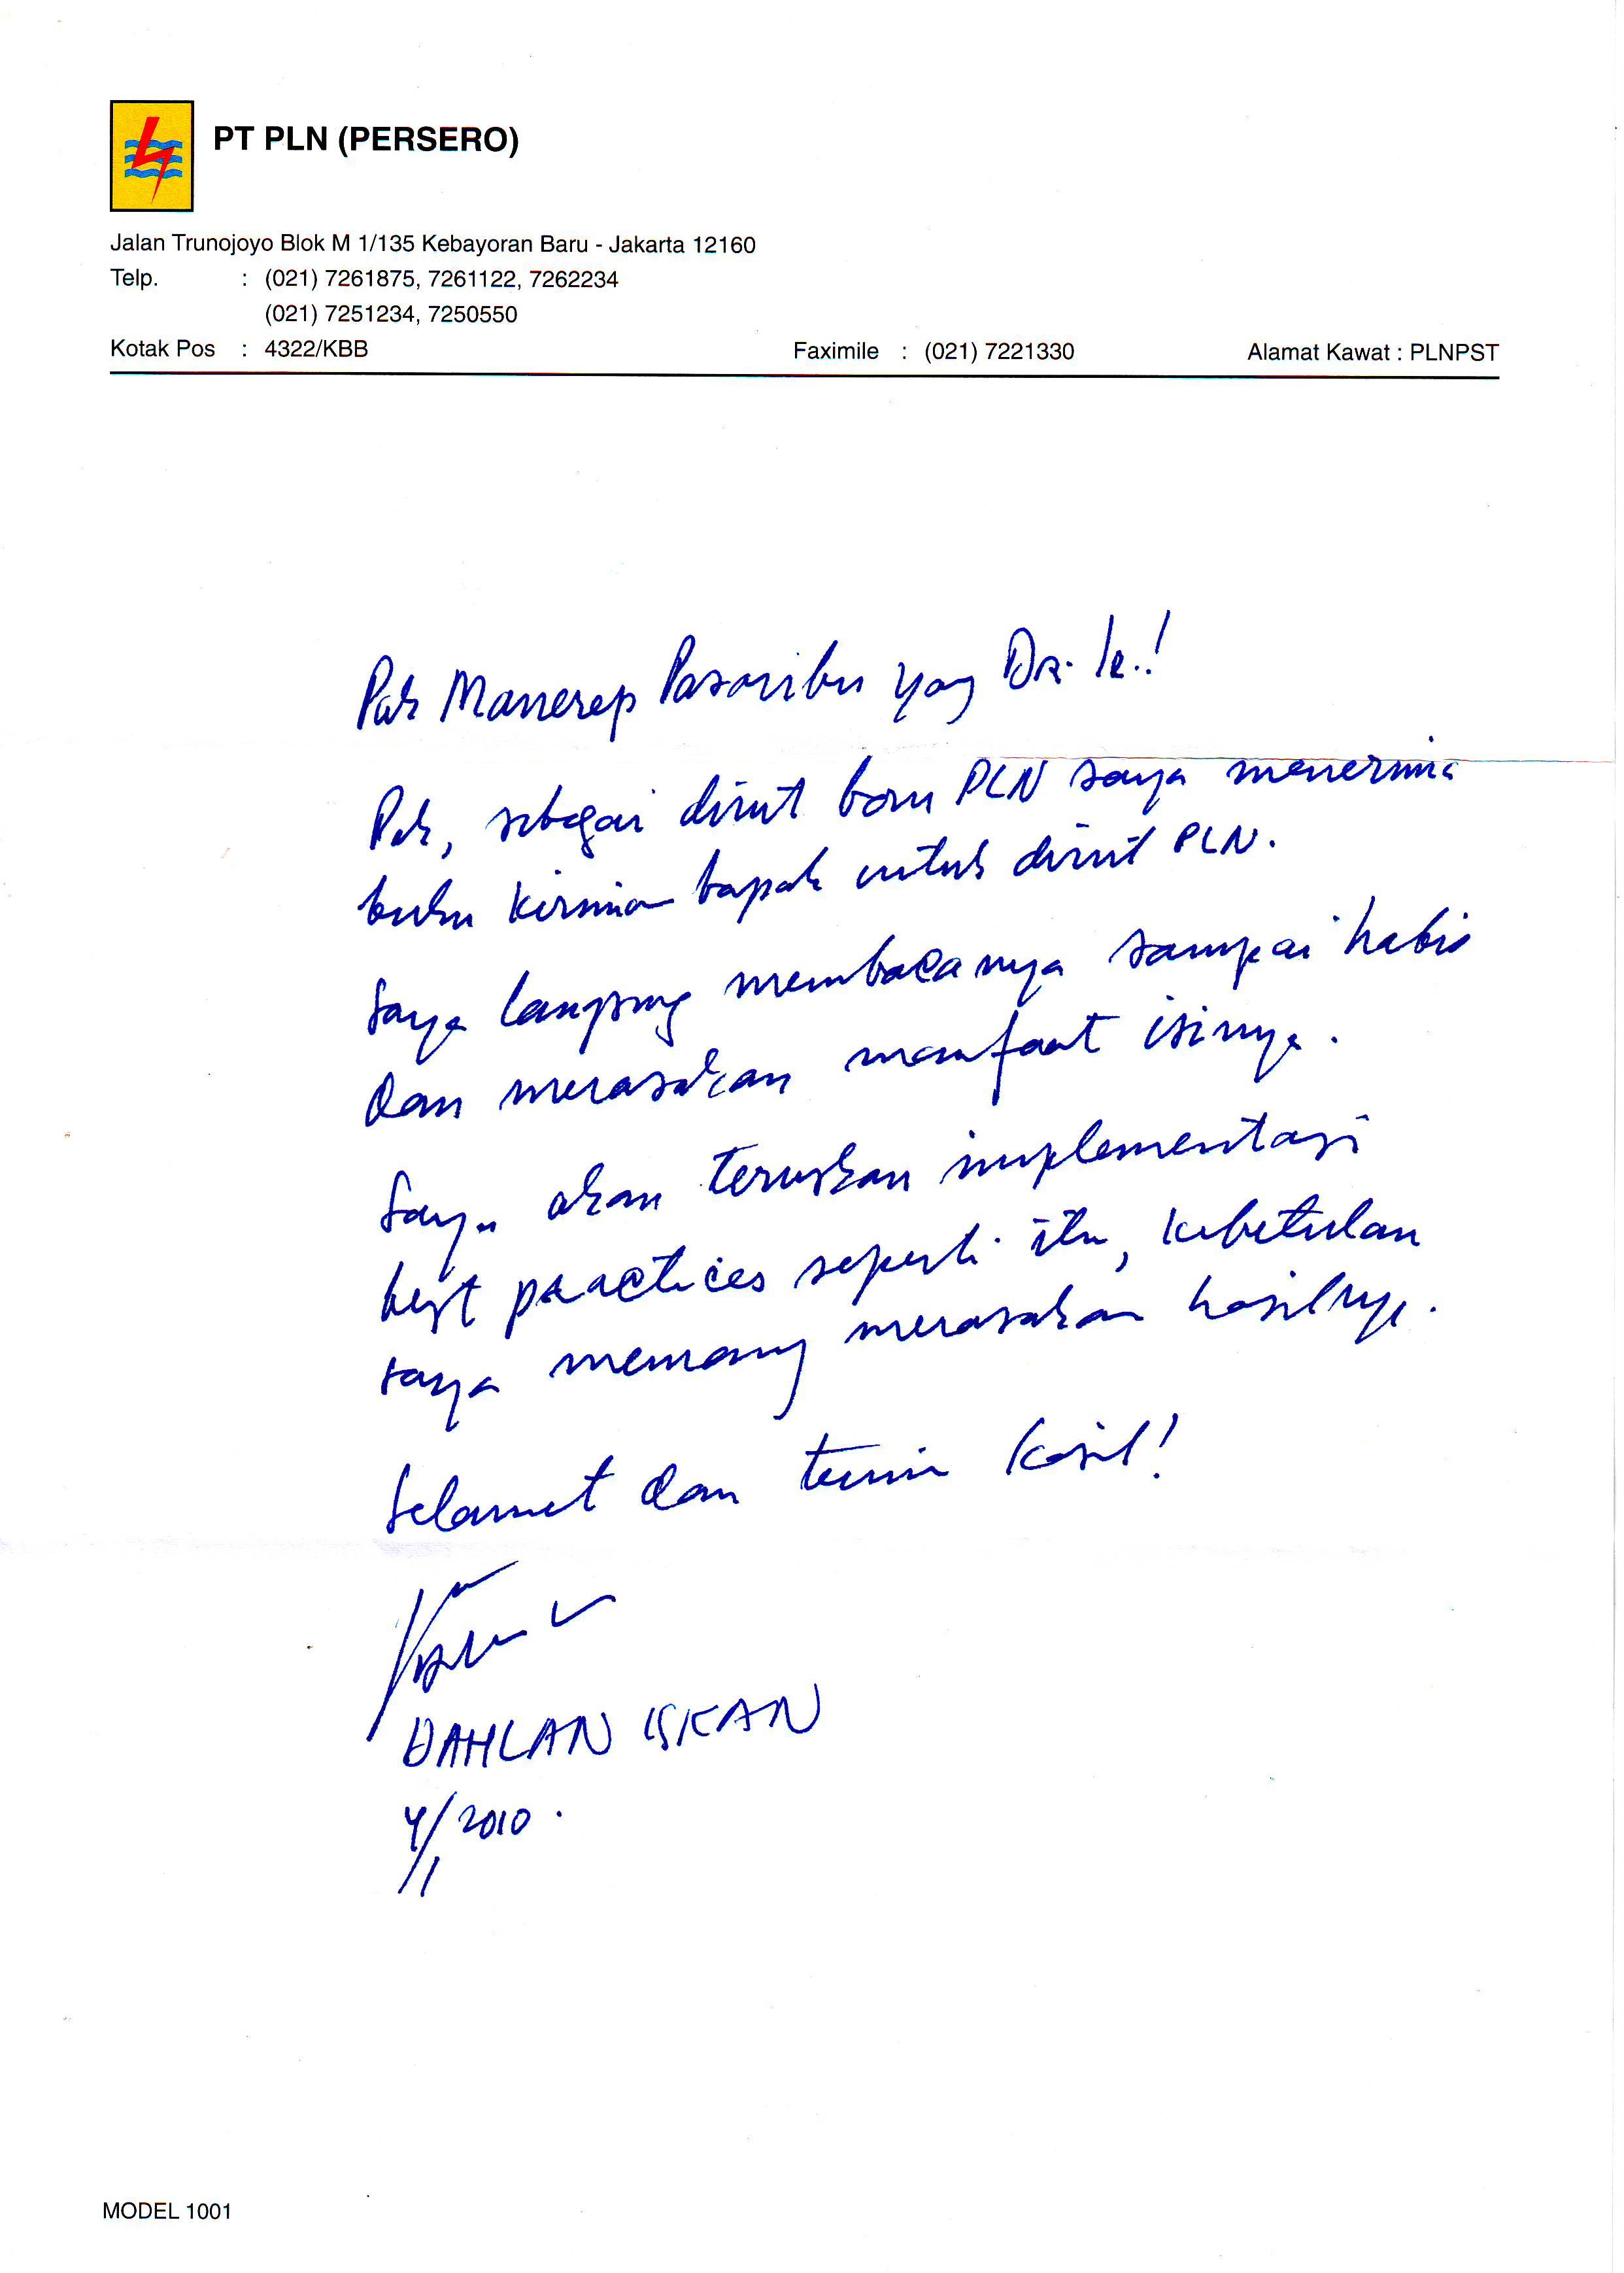 PT PLN (PERSERO)
Jalan Trunojoyo Blok M 1/135 Kebayoran Baru - Jakarta 12160
Telp. : (021) 7261875, 7261122, 7262234
(021) 7251234, 7250550
Kotak Pos : 4322/KBB Faximile : (021) 7221330 Alamat Kawat : PLNPST
Pak Manerep Pasaribu yang
Pak, sebagai dirut baru PLN saya menerima
buku kiriman bapak untuk dirut PLN.
Saya langsung membacanya sampai habis
dan merasakan manfaat isinya.
Saya akan teruskan implementasi
best practices seperti itu, kebetulan
saya memang merasakan hasilnya.
Selamat dan terima kasih!
DAHLAN ISKAN
4/1/2010.
MODEL 1001